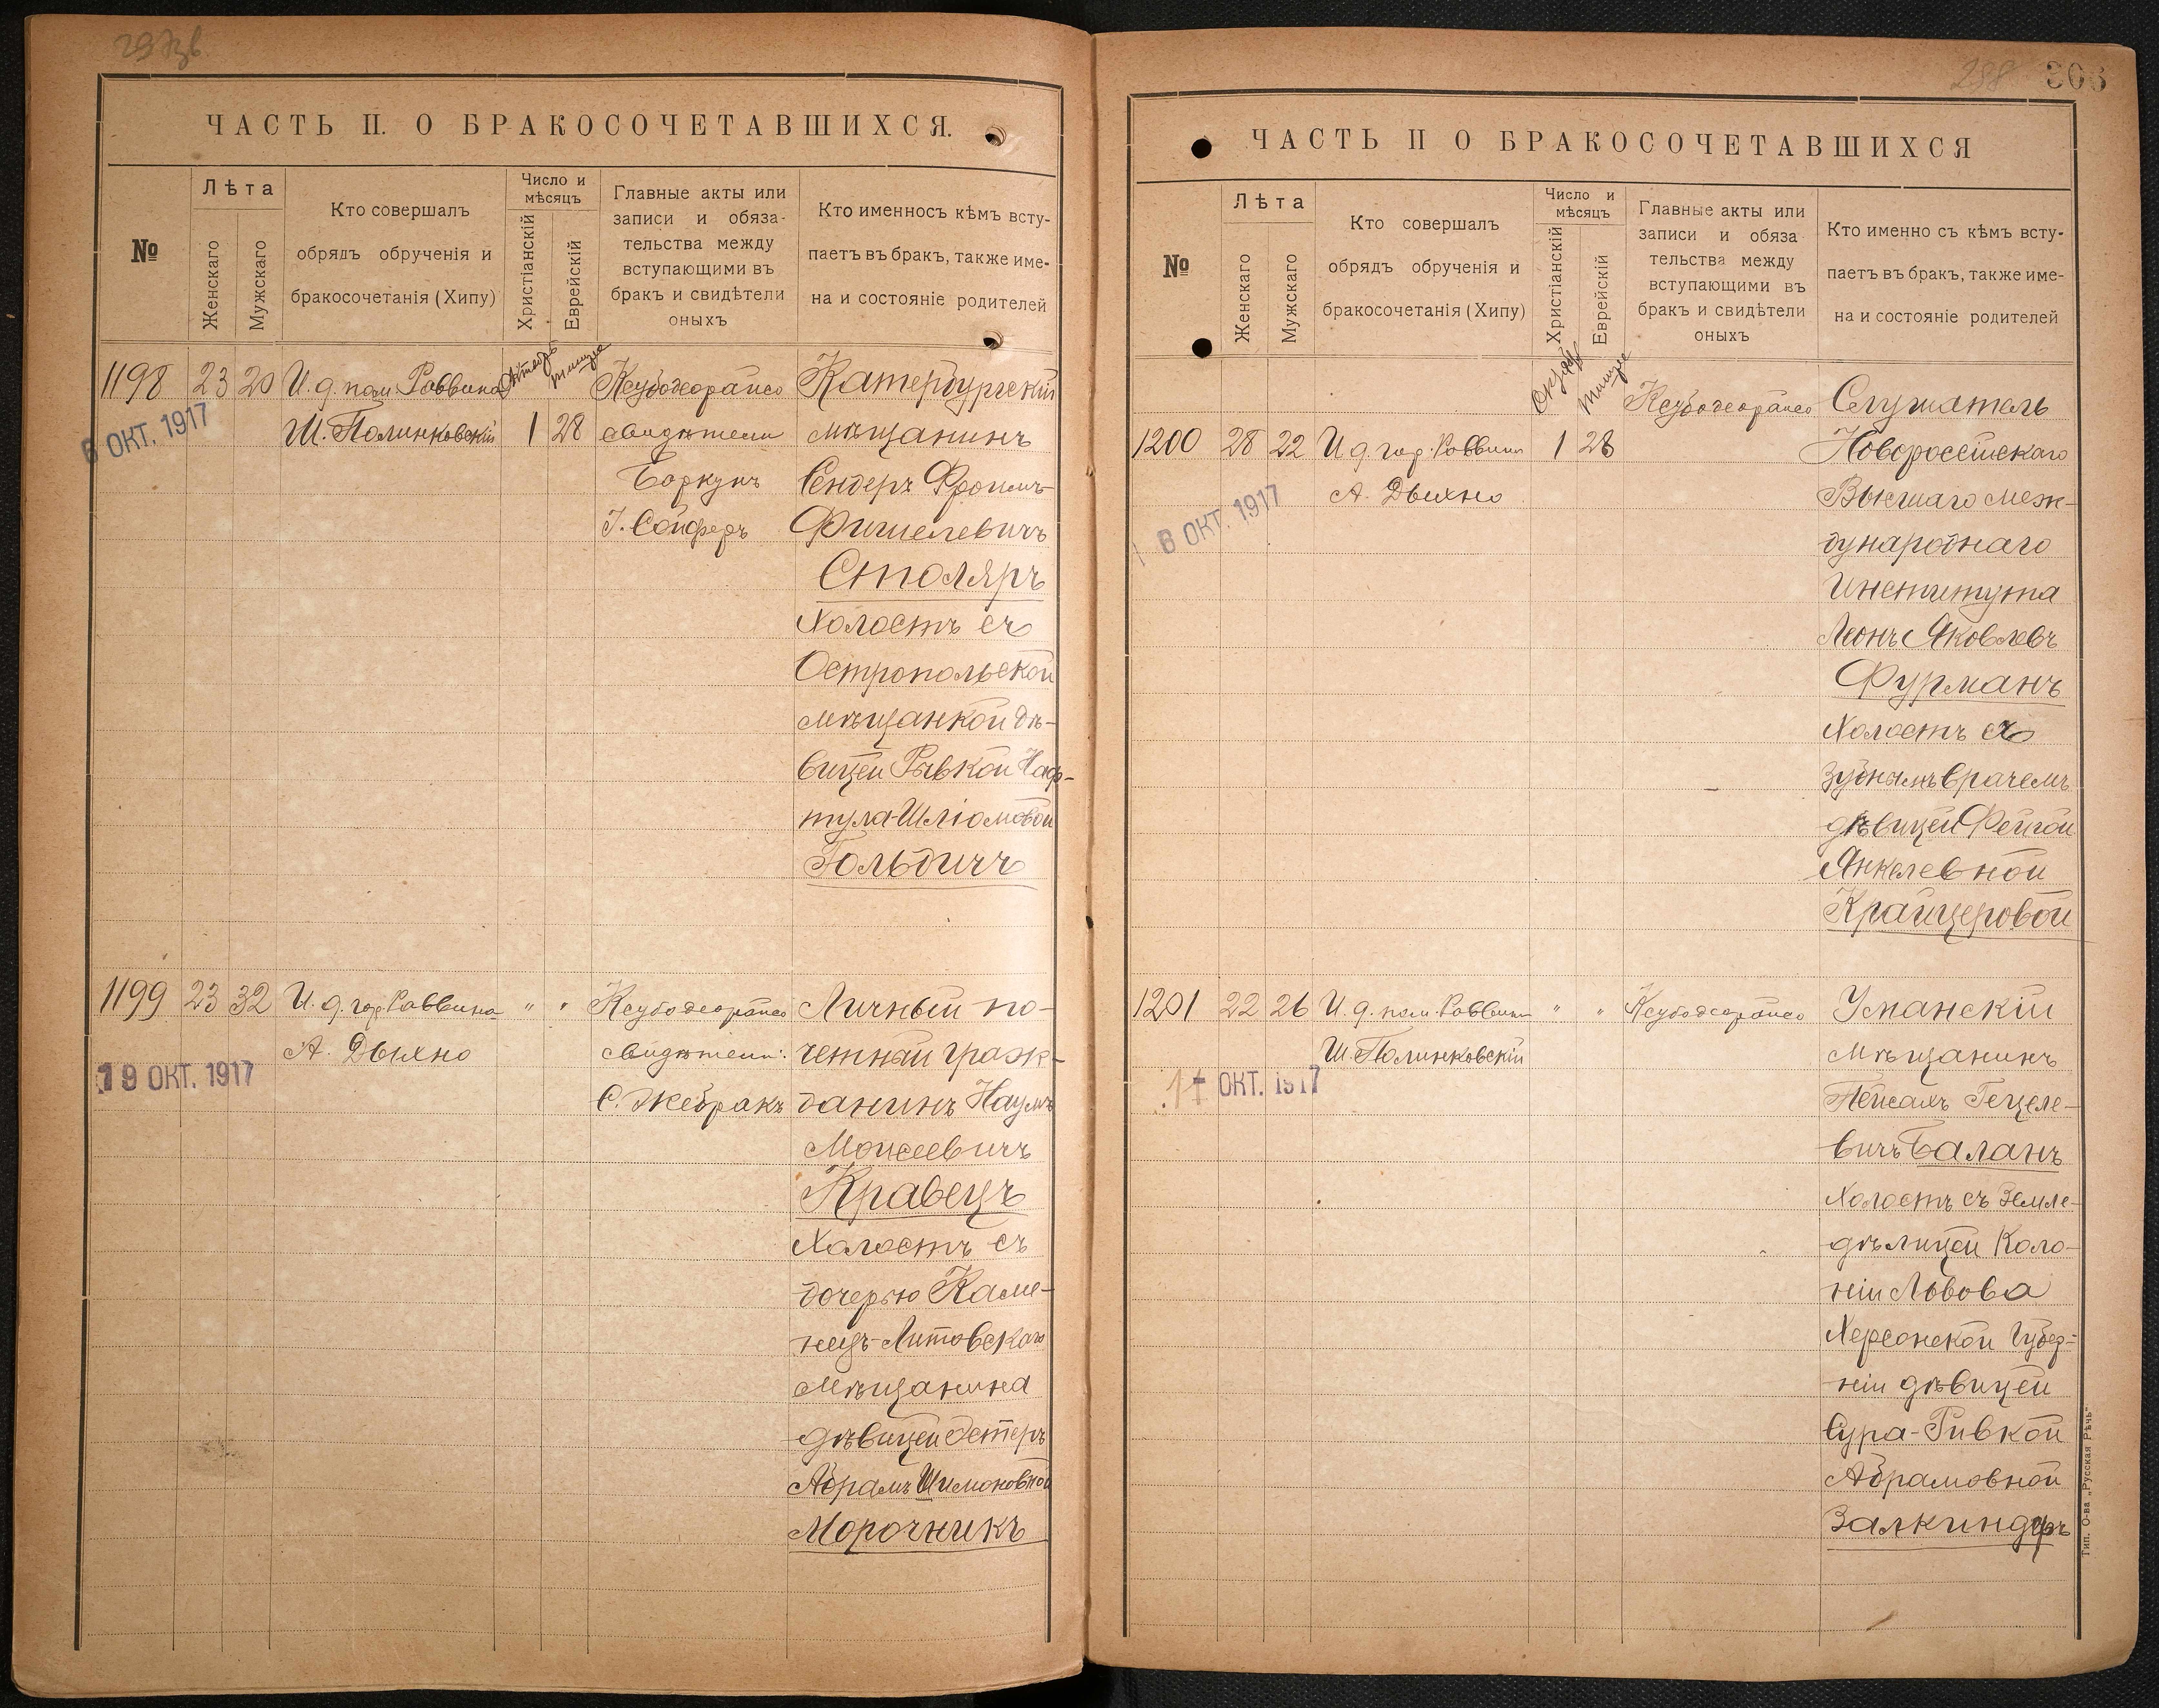 ЧАСТЬ II. О БРАКОСОЧЕТАВШИХСЯ.
№
Лѣта
Женскаго
Мужскаго
Кто совершалъ
обрядъ обрученія и
бракосочетанія (Хипу)
Число и
мѣсяцъ
Христіанскій
Еврейскій
Главные акты или
записи и обяза-
тельства между
вступающими въ
бракъ и свидѣтели
оныхъ
Кто именносъ кѣмъ всту-
паетъ въ бракъ, также име-
на и состояніе родителей
1198 23 20
И. д. пом. Раввина
Ш. Полинковскій
6 ОКТ. 1917
Октябр
тишре
1 28
свидѣтели
Боркунъ
І. Сойферъ
Катербургскій
мѣщанинъ
Сендеръ Фроимъ-
Фишелевичъ
Столяръ
Холостъ съ
Остропольской
мѣщанкой дѣ-
вицей Рывкой Наф-
тула-Шліомовой
Гольдичъ
1199 23 32
И. д. гор. Раввина
А. Дыхно
19 ОКТ. 1917
" "
свидѣтели:
С. Жебракъ
Личный по-
четный граж-
данинъ Наумъ
Моисеевичъ
Кравецъ
Холостъ съ
дочерью Каме-
нецъ-Литовскаго
Мѣщанина
дѣвицей Эстеръ
Абрамъ Шимоновной
Морочникъ
306
298
ЧАСТЬ II О БРАКОСОЧЕТАВШИХСЯ
№
Лѣта
Женскаго
Мужскаго
Кто совершалъ
обрядъ обрученія и
бракосочетанія (Хипу)
Число и
мѣсяцъ
Христіанскій
Еврейскій
Главные акты или
записи и обяза
тельства между
вступающими въ
бракъ и свидѣтели
оныхъ
Кто именно съ кѣмъ всту-
паетъ въ бракъ, также име-
на и состояніе родителей
1200 28 22
И д гор. Раввина
А. Дыхно
6 ОКТ. 1917
Октяб
тишре
1 28
Слушатель
Новороссійскаго
Высшаго меж-
дународнаго
Института
Леонъ Яковлевъ
Фурманъ
Холостъ съ
зубнымъ врачемъ
дѣвицей Фейгой
Янкелевной
Крайцеровой
1201 22 26
И. д. пом. Раввина
Ш. Полинковскій
ОКТ. 1917
" "
Уманскій
Мѣщанинъ
Пейсахъ Гецеле-
вичъ Баланъ
Холостъ съ Земле-
дѣлицей Коло-
ніи Львова
Херсонской Губер-
ніи дѣвицей
Сура-Ривкой
Абрамовной
Залкиндъ
Тип. О-ва „Русская Рѣчь"